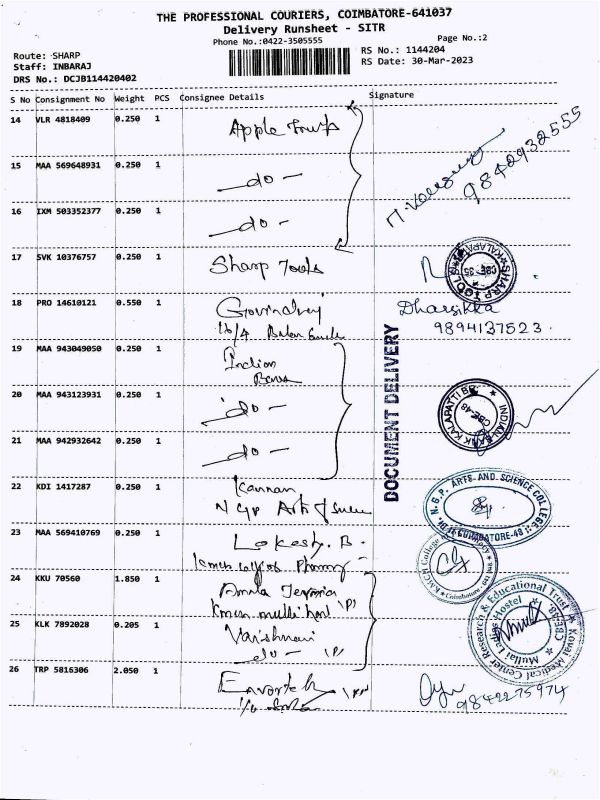 THE PROFESSIONAL COURIERS, COIMBATORE-641037
Delivery Runsheet - SITR
Phone No.:0422-3505555 Page No.:2
Route: SHARP RS No.: 1144204
Staff: INBARAJ RS Date: 30-Mar-2023
DRS No.: DCJB114420402
S No Consignment No Weight PCS Consignee Details Signature
14 VLR 4818409 0.250 1 Apple
9842932555
15 MAA 569648931 0.250 1 -do-
16 IXM 503352377 0.250 1 -do-
17 SVK 10376757 0.250 1 Sharp Tools
SHARP TOOLS KALAPATTI CBE-35
18 PRO 14610121 0.550 1 Govindraj
16/4
Dharsikka
9894137523
DOCUMENT DELIVERY
19 MAA 943049050 0.250 1 Indian
Bank
20 MAA 943123931 0.250 1 -do-
INDIAN BANK KALAPATTI BR. CBE-48
21 MAA 942932642 0.250 1 -do-
22 KDI 1417287 0.250 1 Kannan
NGP
Dr. N.G.P. ARTS AND SCIENCE COLLEGE
COIMBATORE-48
23 MAA 569410769 0.250 1 Lokesh. B.
KMCH College of
Coimbatore
24 KKU 70560 1.850 1
25 KLK 7892028 0.205 1 Vaishnavi
-do-
Kovai Medical Center Research & Educational Trust
Mullai Ladies Hostel
26 TRP 5816306 2.050 1
9842275974